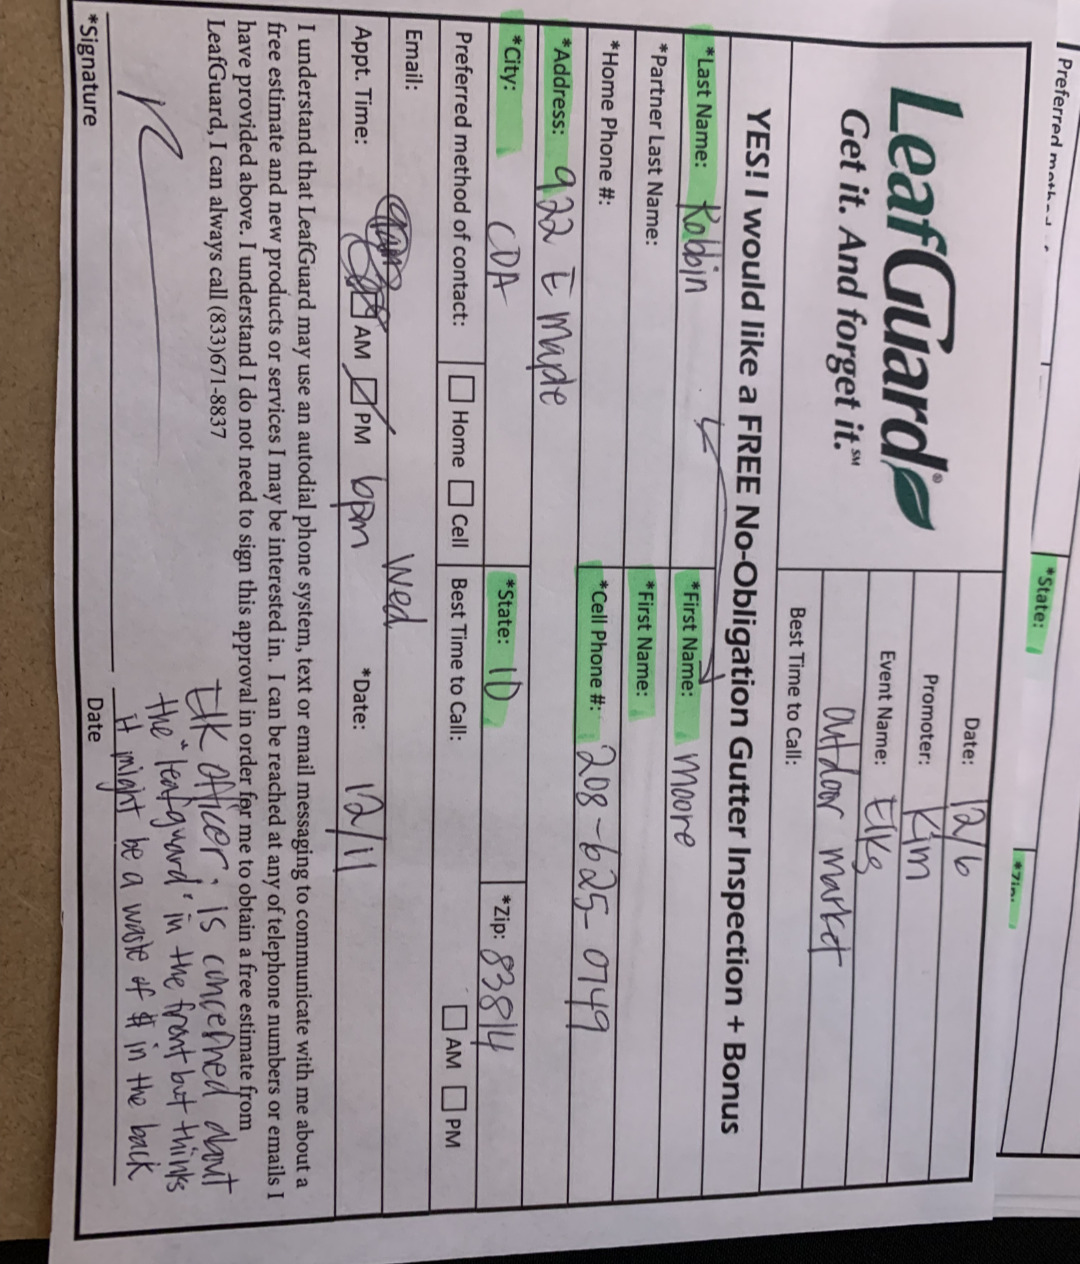 Preferred
*State:
*Zip:
LeafGuard®
Get it. And forget it.℠
Date: 12/6
Promoter: Kim
Event Name: Elks
outdoor market
Best Time to Call:
YES! I would like a FREE No-Obligation Gutter Inspection + Bonus
*Last Name: Robbin *First Name: Moore
*Partner Last Name: *First Name:
*Home Phone #: *Cell Phone #: 208-625-0749
*Address: 922 E Maple
*City: CDA *State: ID *Zip: 83814
Preferred method of contact: Home Cell Best Time to Call: AM PM
Email:
Wed
Appt. Time: AM PM 6pm *Date: 12/11
I understand that LeafGuard may use an autodial phone system, text or email messaging to communicate with me about a
free estimate and new products or services I may be interested in. I can be reached at any of telephone numbers or emails I
have provided above. I understand I do not need to sign this approval in order for me to obtain a free estimate from
LeafGuard, I can always call (833)671-8837
ELK officer is concerned about
the "leafguard" in the front but thinks
it might be a waste of $ in the back
*Signature Date